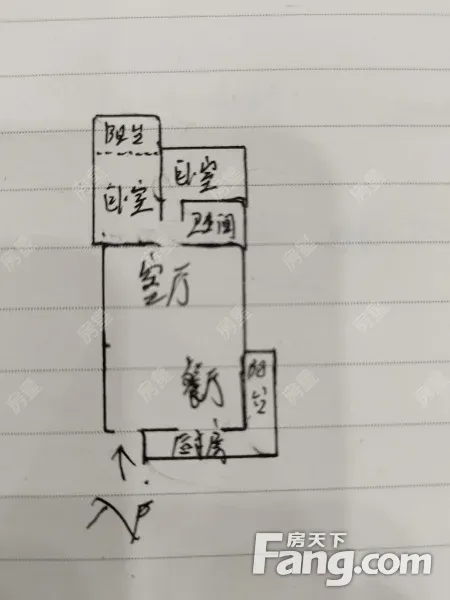 阳台
卧室
卧室
卫生间
客厅
餐厅
阳台
厨房
入户
房天下
Fang.com